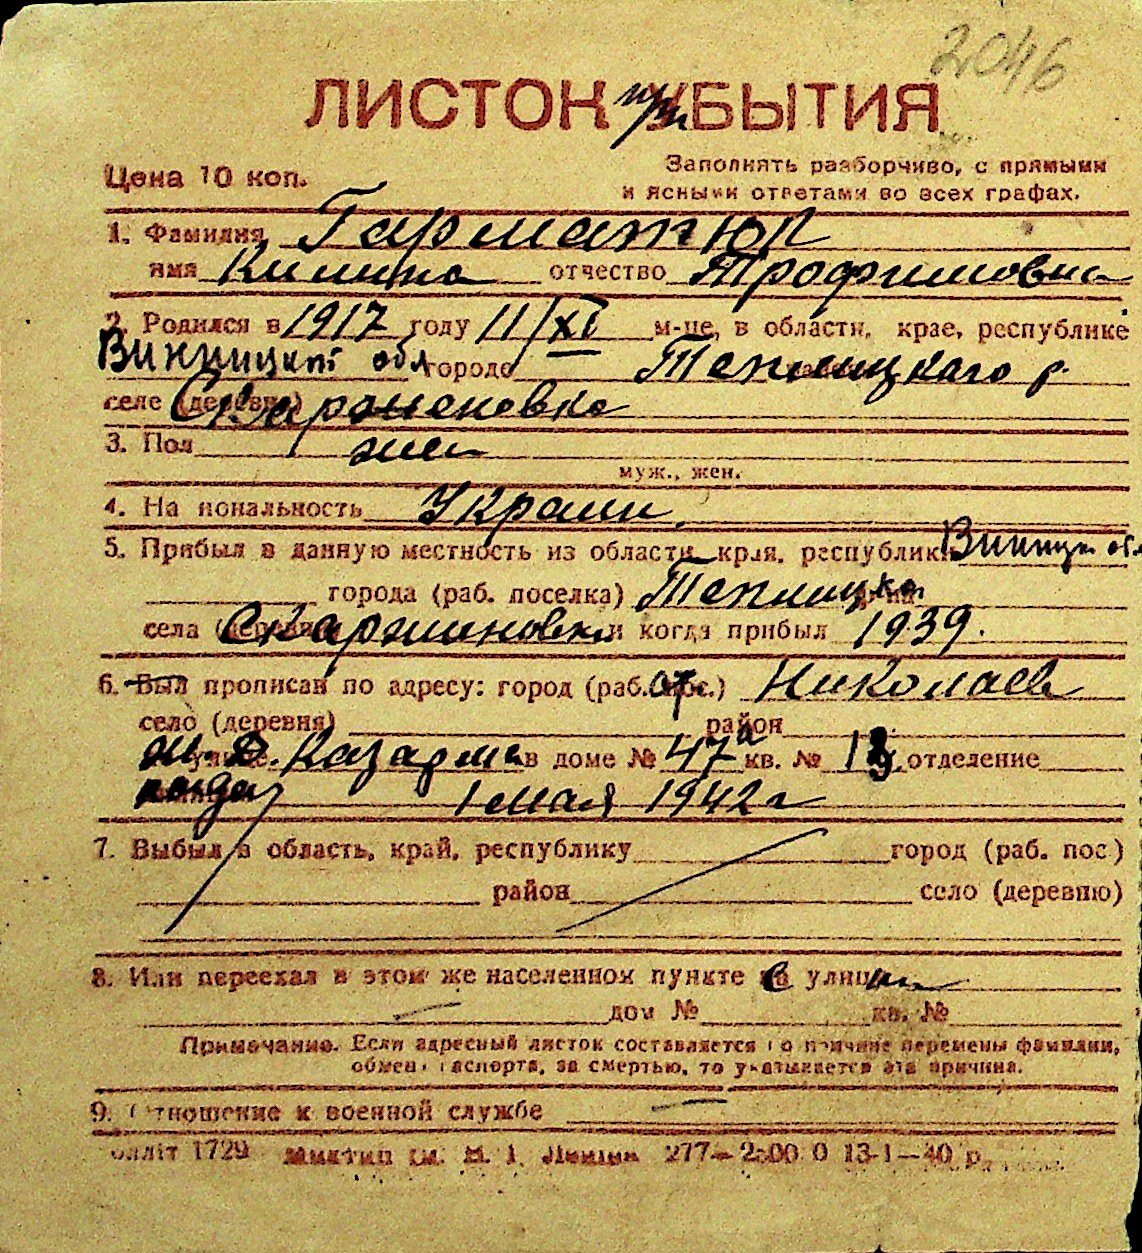 2046
ЛИСТОК при БЫТИЯ
Цена 10 коп.
Заполнять разборчиво, с прямыми
и ясными ответами во всех графах.
1. Фамилия Гарматюк
имя Килина отчество Трофимовна
2. Родился в 1917 году 11/XI м-це, в области, крае, республике
Винницкой обл городе Теплицкаго р.
селе (деревне)
3. Пол жен
муж., жен.
4. На иональность Украин.
5. Прибыл в данную местность из области, края, республики Винницк обл
города (раб. поселка) Теплицко
села и когда прибыл 1939.
6. Был прописан по адресу: город (раб. пос.) Николаев
село (деревня) район
Казарма в доме № 47а кв. № отделение
когда 1 мая 1942 г
7. Выбыл в область, край, республику город (раб. пос)
район село (деревню)
8. Или переехал в этом же населенном пункте с улицы
дом № кв. №
Примечание. Если адресный листок составляется по причине перемены фамилии,
обмена паспорта, за смертью, то указывается эта причина.
9. Отношение к военной службе
1729 277— 13-1—40 р.